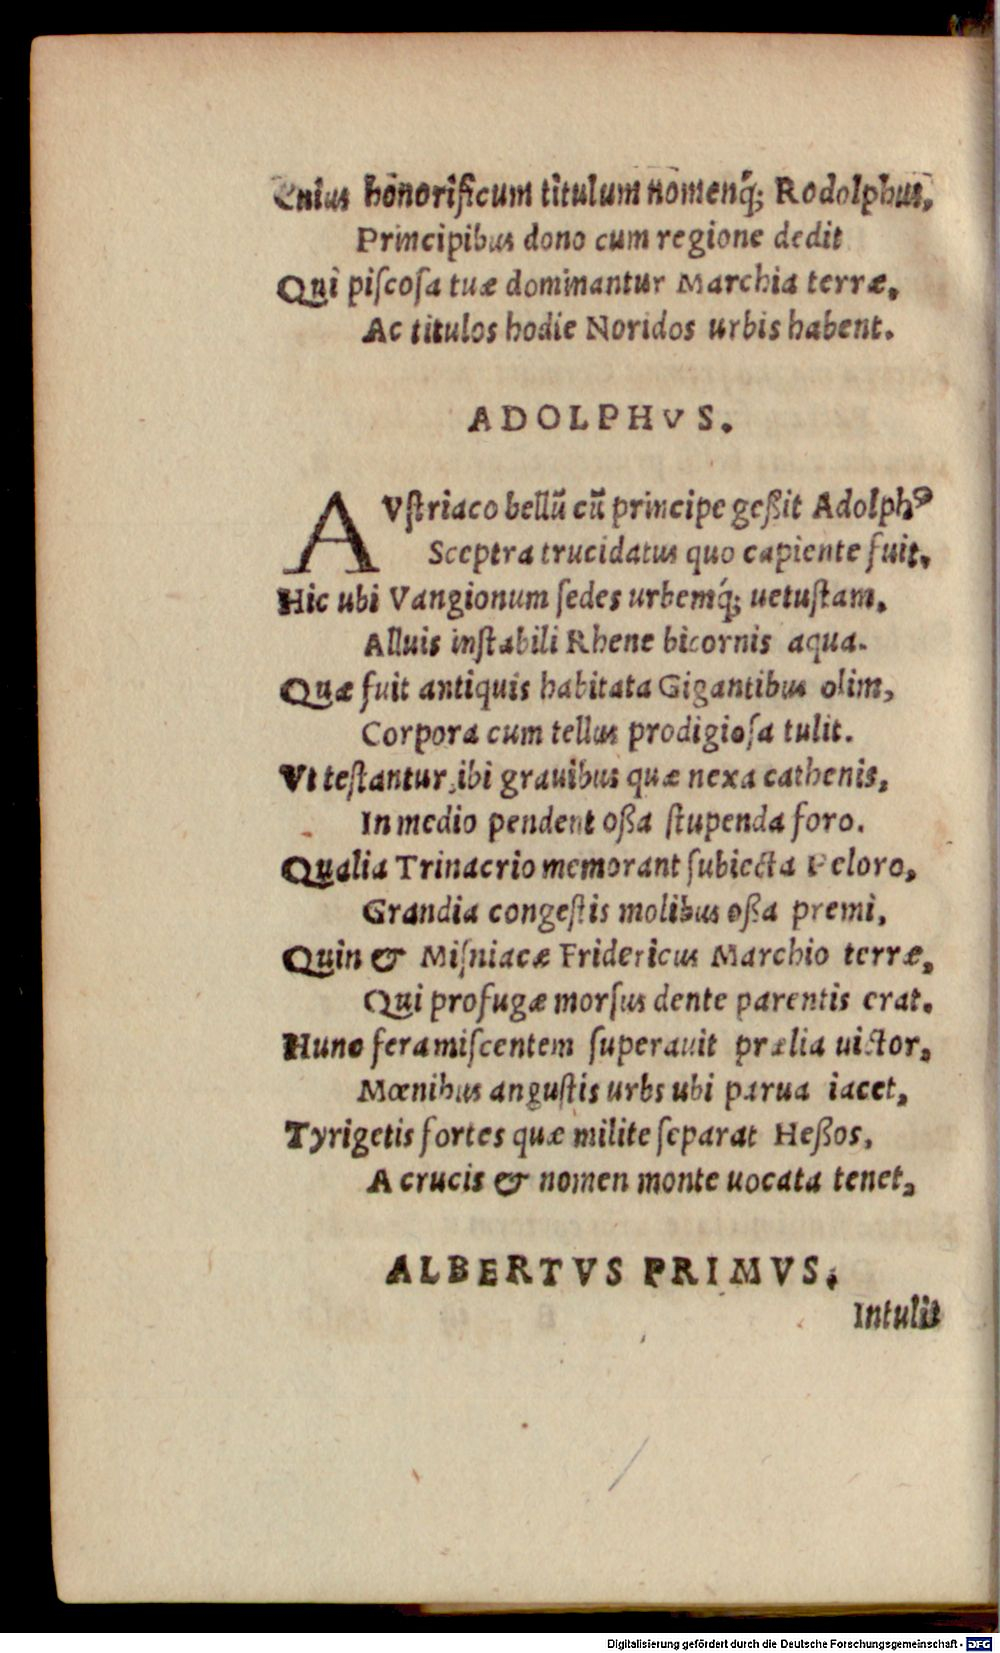 Cuius honorificum titulum nomenq́; Rodolphus,
Principibus dono cum regione dedit
Qui piſcoſa tuæ dominantur Marchia terræ,
Ac titulos hodie Noridos urbis habent.
ADOLPHVS.
AVſtriaco bellũ cũ principe geßit Adolphꝰ
Sceptra trucidatus quo capiente fuit,
Hic ubi Vangionum ſedes urbemq́; uetuſtam,
Alluis inſtabili Rhene bicornis aqua.
Quæ fuit antiquis habitata Gigantibus olim,
Corpora cum tellus prodigioſa tulit.
Vt teſtantur, ibi grauibus quæ nexa cathenis,
In medio pendent oßa ſtupenda foro.
Qualia Trinacrio memorant ſubiecta Peloro,
Grandia congeſtis molibus oßa premi,
Quin & Miſniacæ Fridericus Marchio terræ,
Qui profugæ morſus dente parentis erat.
Hunc fera miſcentem ſuperauit prælia uictor,
Mœnibus anguſtis urbs ubi parua iacet,
Tyrigetis fortes quæ milite ſeparat Heßos,
A crucis & nomen monte uocata tenet,
ALBERTVS PRIMVS.
Intulit
Digitalisierung gefördert durch die Deutsche Forschungsgemeinschaft - DFG